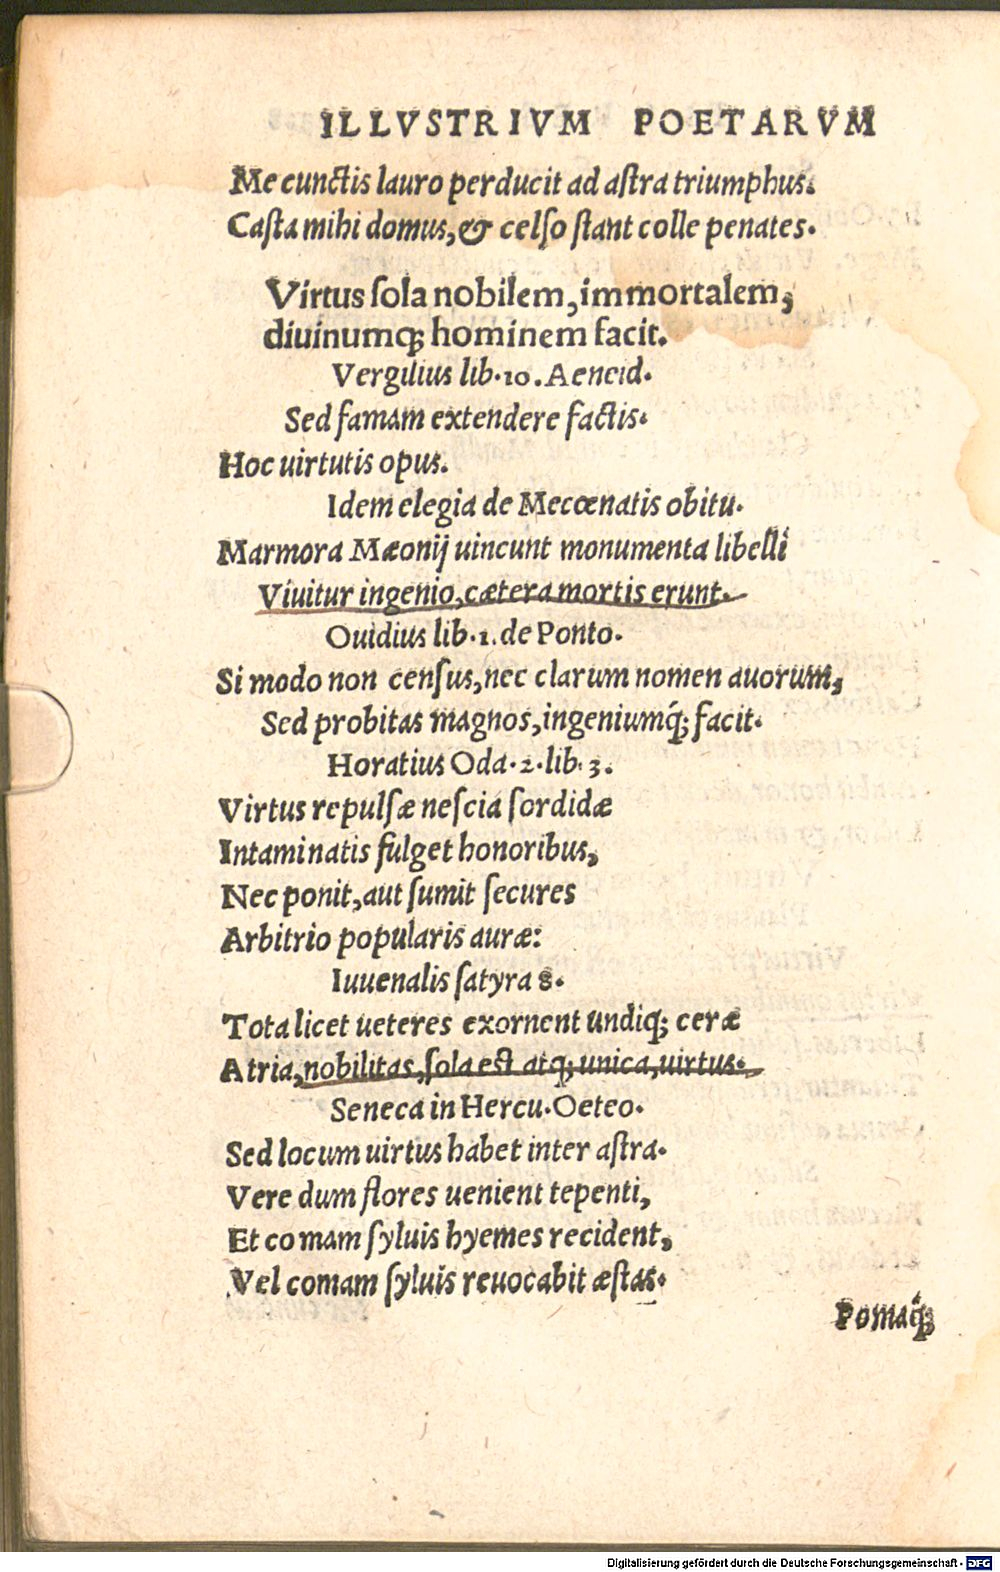 ILLVSTRIVM POETARVM
Me cunctis lauro perducit ad astra triumphus.
Casta mihi domus, & celso stant colle penates.
Virtus sola nobilem, immortalem,
diuinumq; hominem facit.
Vergilius lib. 10. Aeneid.
Sed famam extendere factis.
Hoc uirtutis opus.
Idem elegia de Mecœnatis obitu.
Marmora Mæonij uincunt monumenta libelli
Viuitur ingenio, cætera mortis erunt.
Ouidius lib. 1. de Ponto.
Si modo non census, nec clarum nomen auorum,
Sed probitas magnos, ingeniumq́; facit.
Horatius Oda. 2. lib. 3.
Virtus repulsæ nescia sordidæ
Intaminatis fulget honoribus,
Nec ponit, aut sumit secures
Arbitrio popularis auræ:
Iuuenalis satyra 8.
Tota licet ueteres exornent undiq; ceræ
Atria, nobilitas, sola est atq; unica, uirtus.
Seneca in Hercu. Oeteo.
Sed locum uirtus habet inter astra.
Vere dum flores uenient tepenti,
Et comam syluis hyemes recident,
Vel comam syluis reuocabit æstas.
Pomaq́;
Digitalisierung gefördert durch die Deutsche Forschungsgemeinschaft - DFG